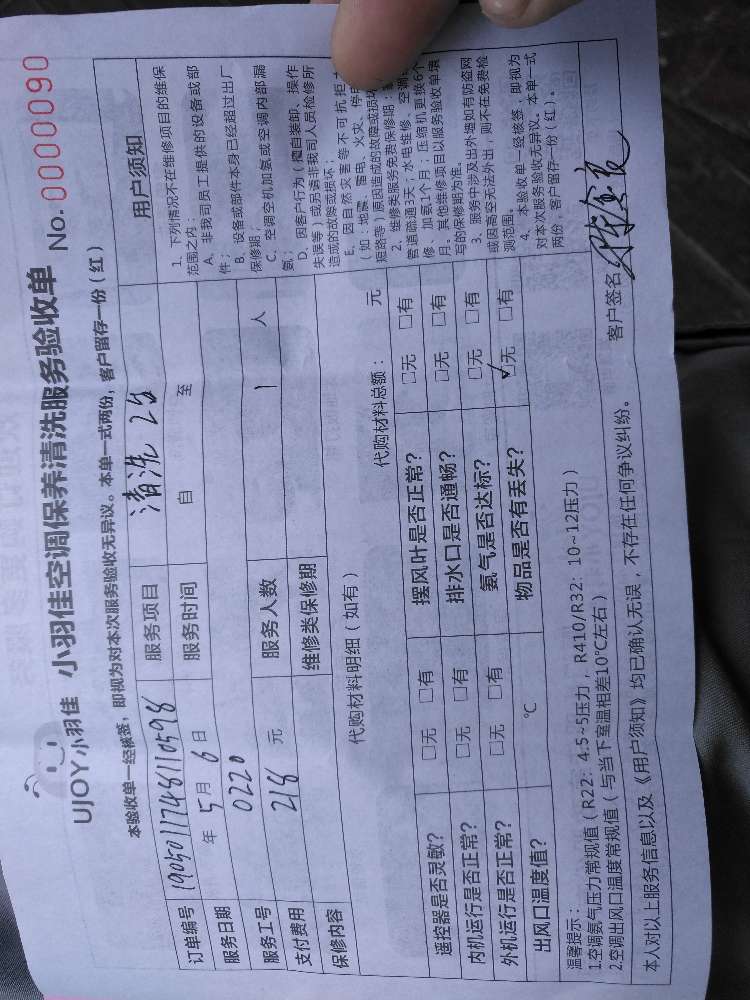 UJOY小羽佳 小羽佳空调保养清洗服务验收单 No.0000090
本验收单一经核签，即视为对本次服务验收无异议。本单一式两份，客户留存一份（红）
订单编号 1905011748110598 服务项目 清洗 2台
服务日期 年 5月 6日 服务时间 自 至
服务工号 0220
支付费用 218 元 服务人数 1 人
保修内容 维修类保修期
代购材料明细（如有） 代购材料总额： 元
遥控器是否灵敏？ □无 □有 摆风叶是否正常？ □无 □有
内机运行是否正常？ □无 □有 排水口是否通畅？ □无 □有
外机运行是否正常？ □无 □有 氨气是否达标？ □无 □有
出风口温度值？ ℃ 物品是否有丢失？ ☑无 □有
用户须知
1、下列情况不在维修项目的维保
范围之内：
A、非我司员工提供的设备或部
件；
B、设备或部件本身已经超过出厂
保修期；
C、空调空机加氨或空调内部漏
氨；
D、因客户行为（擅自装卸、操作
失误等）或另请非我司人员检修所
造成的故障或损坏；
E、因自然灾害等不可抗拒
（如：地震、雷电、火灾、停电
短路等）原因造成的故障或损坏
2、维修类服务免费保修期：
管道疏通3天，水电维修、空调
修、加氨1个月；压缩机更换6个
月。其他维修项目以服务验收单填
写的保修期为准。
3、服务中涉及出外墙如有防盗网
或因高空无法外出，则不在免费检
测范围。
4、本验收单一经核签，即视为
对本次服务验收无异议。本单一式
两份，客户留存一份（红）。
温馨提示：
1.空调氨气压力常规值（R22：4.5~5压力，R410/R32：10~12压力）
2.空调出风口温度常规值（与当下室温相差10℃左右）
本人对以上服务信息以及《用户须知》均已确认无误，不存在任何争议纠纷。 客户签名